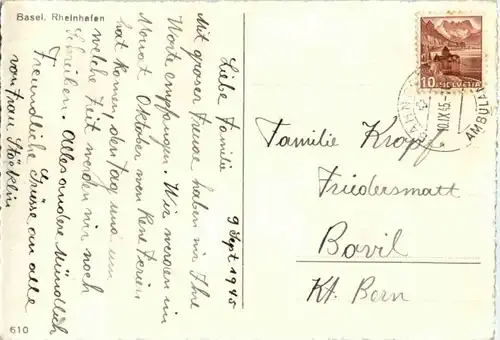 Basel, Rheinhafen
9 Sept 1945
Liebe Familie
Mit grosser Freude haben wir Ihre
Worte empfangen. Wir werden im
Monat Oktober wen Renè Ferien
hat kommen, den Tag und um
welche Zeit werden wir noch
Schreiben. Alles andere Mündlich
Freundliche Grüsse an alle
von Frau Stöcklin
610
10 HELVETIA
BAHN
10.IX.45
AMBULA
Familie Kropf
Friedersmatt
Bovil
Kt. Bern